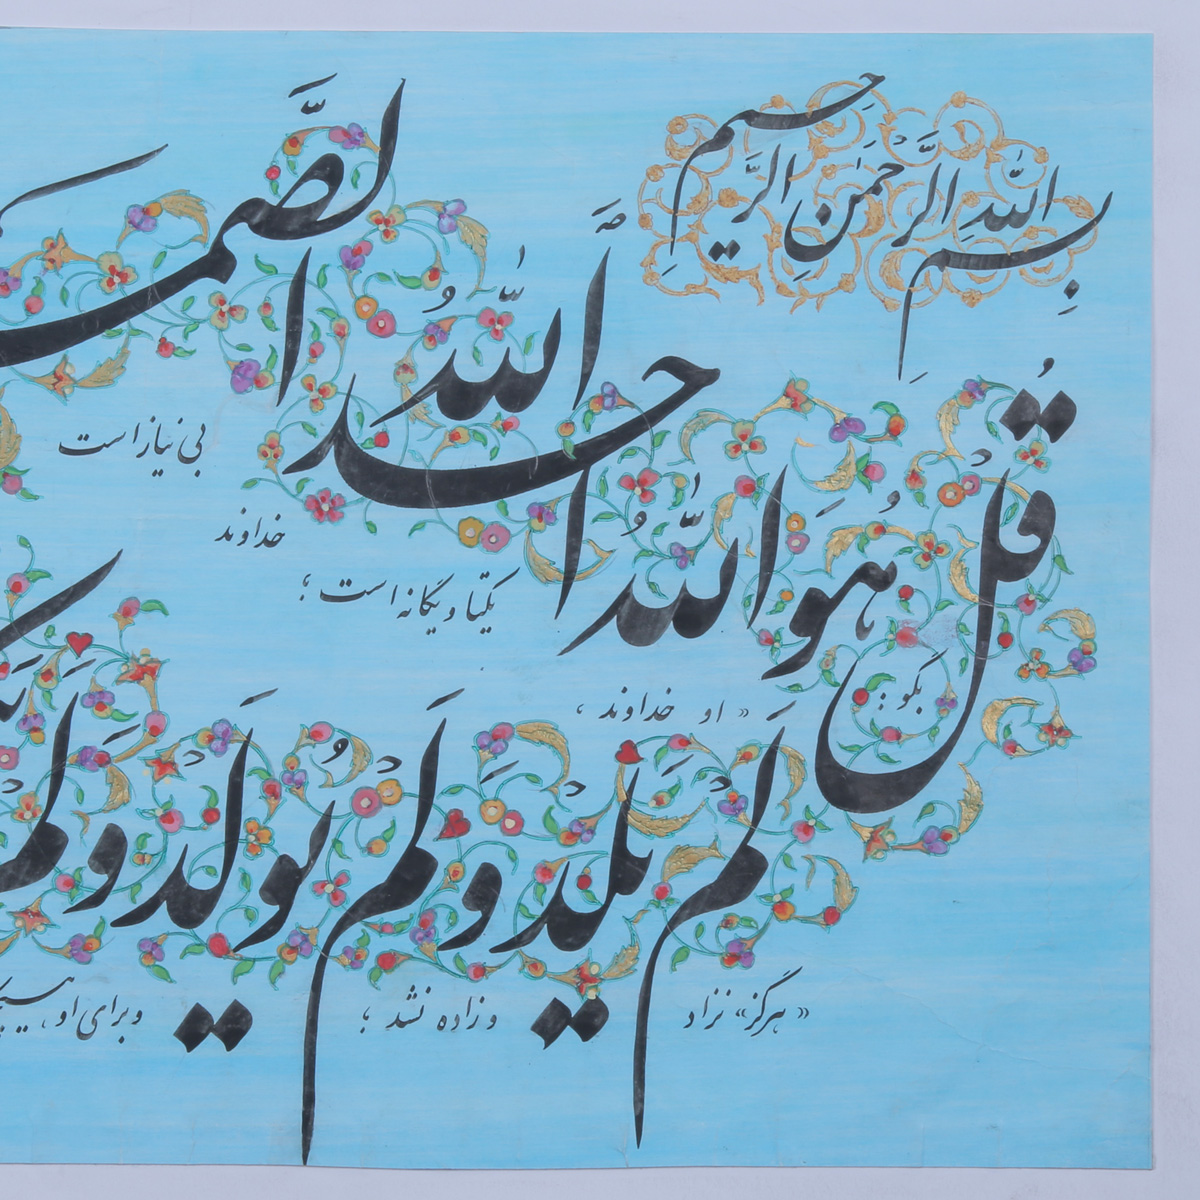 بِسمِ اللهِ الرَّحمٰنِ الرَّحیم
قُلْ هُوَ اللّٰهُ اَحَد اَللّٰهُ الصَّمَد
بگو:
« او خداوند،
یکتا و یگانه است؛
خداوند
بی نیاز است
لَمْ یَلِدْ وَ لَمْ یُولَدْ وَ لَمْ
« هرگز» نزاد
و زاده نشد؛
و برای او،